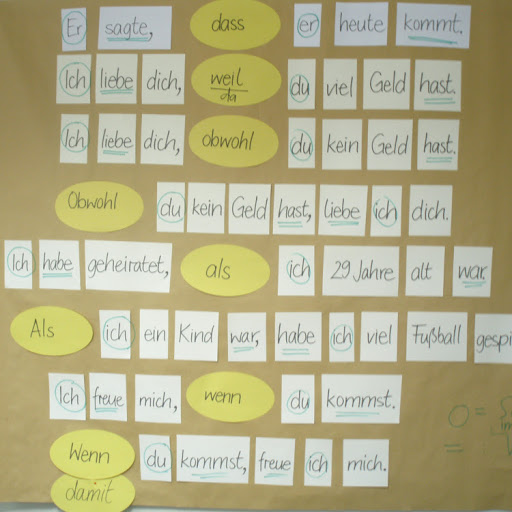 Er sagte, dass er heute kommt.
Ich liebe dich, weil du viel Geld hast.
da
Ich liebe dich, obwohl du kein Geld hast.
Obwohl du kein Geld hast, liebe ich dich.
Ich habe geheiratet, als ich 29 Jahre alt war.
Als ich ein Kind war, habe ich viel Fußball gespi
Ich freue mich, wenn du kommst.
Wenn du kommst, freue ich mich.
damit